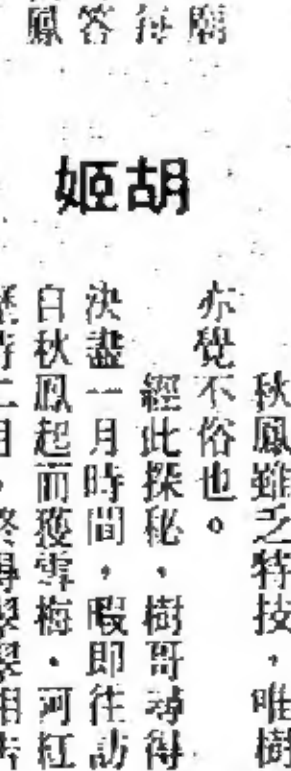 廟
每
答
鳳
胡姬
秋鳳雖乏特技，唯樹
亦覺不俗也。
經此探秘，樹哥尋得
決盡一月時間，暇即往訪
自秋鳳起而獲雪梅．河紅